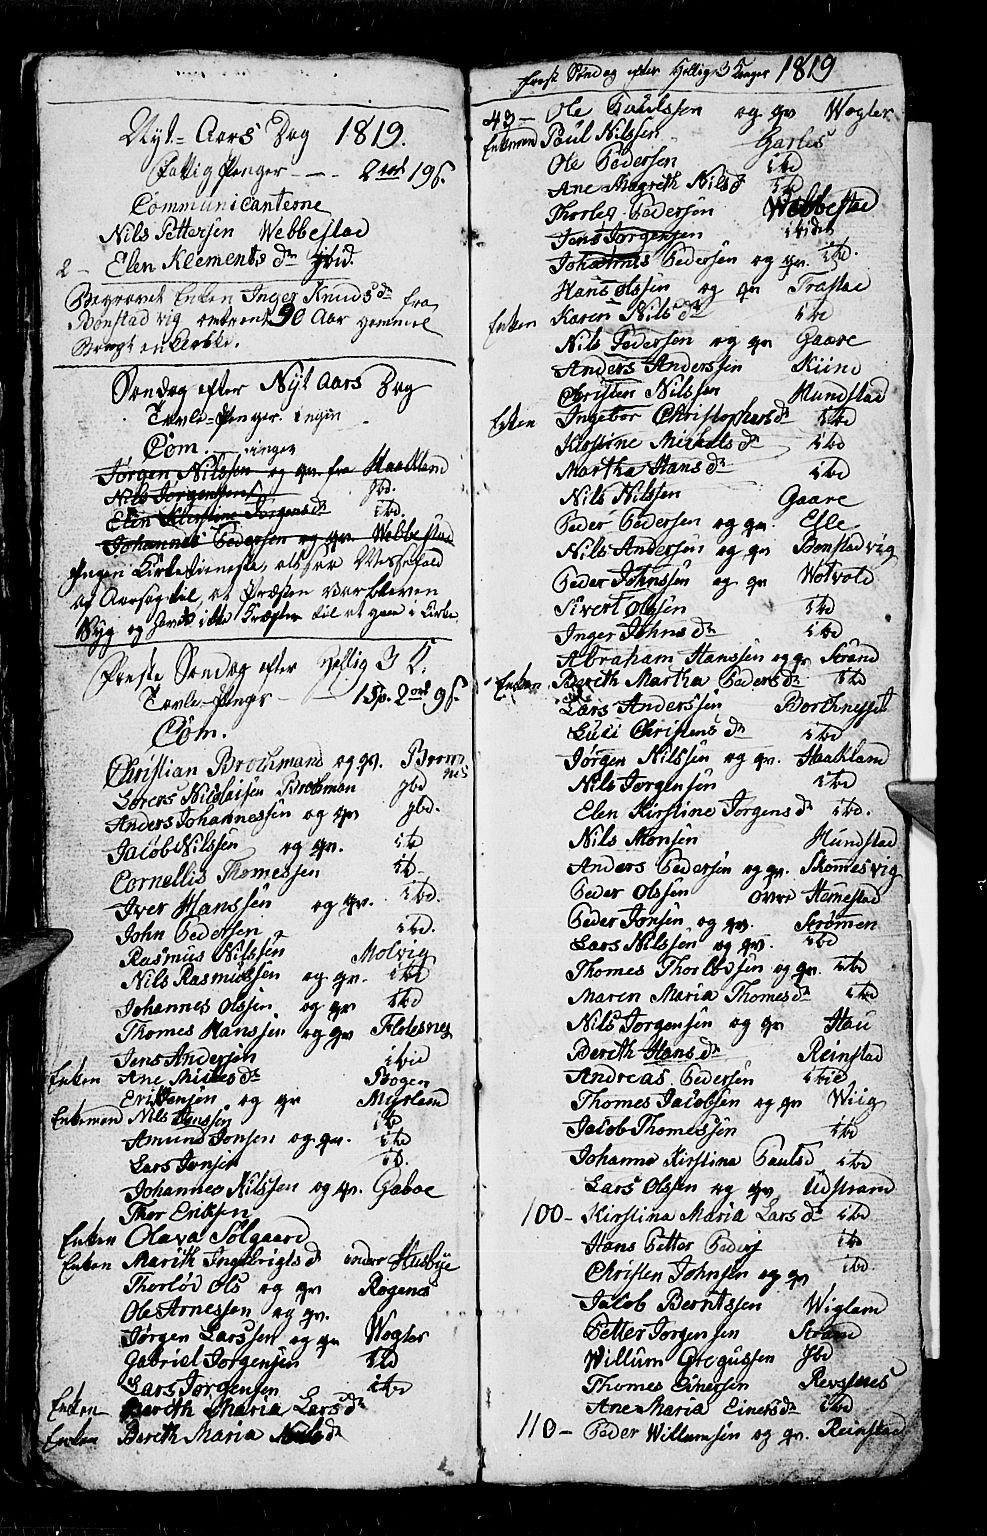 Nyt-Aars Dag 1819.
Fattig Penger - - - 2 ort 19 s.
Communicanterne
Nils Pettersen Webbestad
2 - Elen Klements dr ibid.
Begravet Enken Inger Knuds dr fra
Bonstadvig omtrent 90 Aar gammel
Bragt en Kirke.
Søndag efter Nyt Aars Dag
Tavle-Penger ingen
Com. ingen
Jørgen Nilssen og qv. fra Haaklam
Nils Jørgensen ibd.
Elen Kierstine Jørgensdr ibd.
Johannes Pedersen og qv. Webbestad
Ingen Kirketieneste, olsser Messefald
af Aarsag til, at Præsten var bleven
Syg og havde ikke Kræfter til at gaae i Kirke
Første Søndag efter Hellig 3 K.
Tavle-Penger - 1 Sp. 2 ort 9 s.
Com.
Christian Brochmand og qv. Brem
nes
Sørens Nicolaisen Brochman ibd
Anders Johannessen og qv ibd.
Jacob Nilssen og qv. ibd
Cornelius Thomessen ibd.
Iver Hanssen og qv. ibd.
John Pedersen ibd.
Rasmus Nilssen Molvig
Nils Rasmussen og qv. ibd
Johannes Olssen og qv ibd
Thomes Hanssen og qv Flotesnes
Jens Andersen ibid
Enken Ane Nilsdr Bogen
Erik Jensen og qv Myrlam
Enkemand Nils Janssen ibd
Amund Jonsen og qv. ibd
Lars Jonsen ibd.
Johannes Nilssen og qv. Gaboe
Thor Eriksen
Enken Olava Solgaard
Enken Marith Ingebrigts d. nedre Husbye
Thorlød Ols og qv Rogenes
Ole Arnessen og qv.
Jørgen Larssen og qv Vogler
Gabriel Jørgensen ibd
Lars Jørgensen ibd
Enken Berith Maria Lars dr
Enken Berith Maria Nils dr
Første Søndag efter Hellig 3 Konger 1819
43 - Ole Paulssen og qv Wogler
Enkemand Paul Nilsen Garles
Ole Pedersen ibd
Ane Magreth Nilsd ibd
Thorles Pedersen Webbestad
Jens Jørgensen ibidet
Johannes Pedersen og qv. ibd.
Hans Olssen og qv Trastad
Enken Karen Nils dr ibd
Nils Pedersen og qv Gaare
Anders Anderssen Kiind
Christen Nilssen Hundstad
Enken Ingebor Christophersdr ibd
Kirstine Michels dr ibd
Martha Hans dr ibd
Nils Nilssen Gaare
Peder Pedersen og qv. Efle
Nils Andersen og qv Bonstadvig
Peder Johnssen og qv Wotvold
Sivert Olssen ibd
Inger Johns dr ibd
Abraham Hanssen og qv Strand
Enken Berith Martha Peders dr ibd
Lars Anderssen Borthnesset
Luci Christens dr ibd
Jørgen Nilssen og qv. Haaklam
Nils Jørgensen ibd
Elen Kirstine Jørgens dr ibd.
Nils Monsen Hundstad
Anders Pedersen og qv. Skomesvig
Peder Olssen øvre Hamestad
Peder Jonsen og qv. Strømen
Lars Nilssen og qv. ibd
Thomes Thorlødsen og qv. ibd
Maren Maria Thomes dr ibd
Nils Jørgensen og qv Hau
Berith Hans dr Reinstad
Andreas Pedersen ibid
Thomes Jacobsen og qv Wiig
Jacob Thomessen ibd
Johanna Kirstina Pauls d ibd
Lars Olssen og qv Udstrand
100 - Kirstina Maria Lars dr ibd
Hans Petter Peders ibd
Christen Johnsen og qv ibd
Jacob Berntssen Wiglam
Petter Jørgensen Stram
Willum Gregussen ibd
Thomes Einersen Revsenes
Ane Maria Einers dr ibd
110 - Peder Willumsen og qv. Reinstad